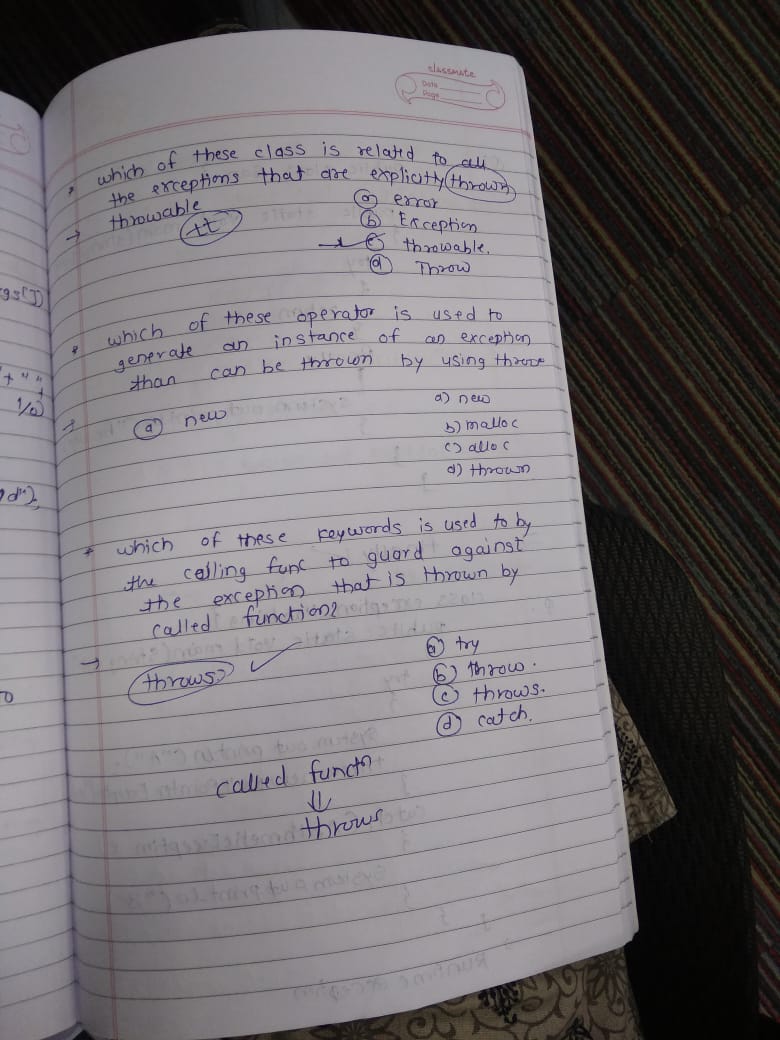 classmate
Date
Page
* which of these class is related to all
the exceptions that are explicitly thrown
→ throwable
tt
a error
b Exception
c throwable.
d Throw
* which of these operator is used to
generate an instance of an exception
than can be thrown by using throw
→ a new
a) new
b) malloc
c) alloc
d) thrown
* which of these keywords is used to by
the calling func to guard against
the exception that is thrown by
called function?
→ throws
a try
b throw.
c throws.
d catch.
called functn
⇓
throws
gs[])
1/0)